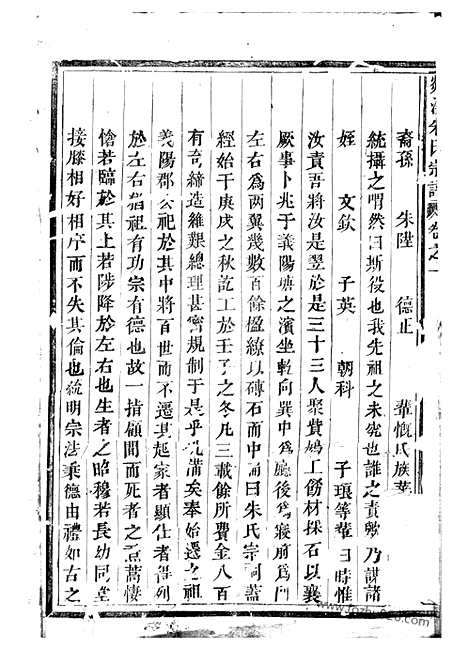 裔孫 朱陞 德正 輩慨氏族葉
統攝之喟然曰斯役也我先祖之未究也誰之責歟乃謀諸
姪 文欽 子英 朝科 子瓊等輩曰時惟
汝責吾將汝是翌於是三十三人聚貲鳩工飭材採石以襄
厥事卜兆于義陽塘之濱坐乾向巽中為廳後為寢前為門
左右為兩翼幾數百餘楹繚以磚石而中扁曰朱氏宗祠蓋
經始于庚戌之秋訖工於壬子之冬凡三載餘所費金八百
有奇締造維艱總理甚密規制于是乎備矣奉始遷之祖
義陽郡公祀於其中將百世而不遷其起家者顯仕者得列
於左右猶祖有功宗有德也故一指顧間而死者之焄蒿悽
愴若臨於其上若陟降於左右也生者之昭穆若長幼同堂
接膝相好相序而不失其倫也統明宗法秉德由禮如古之